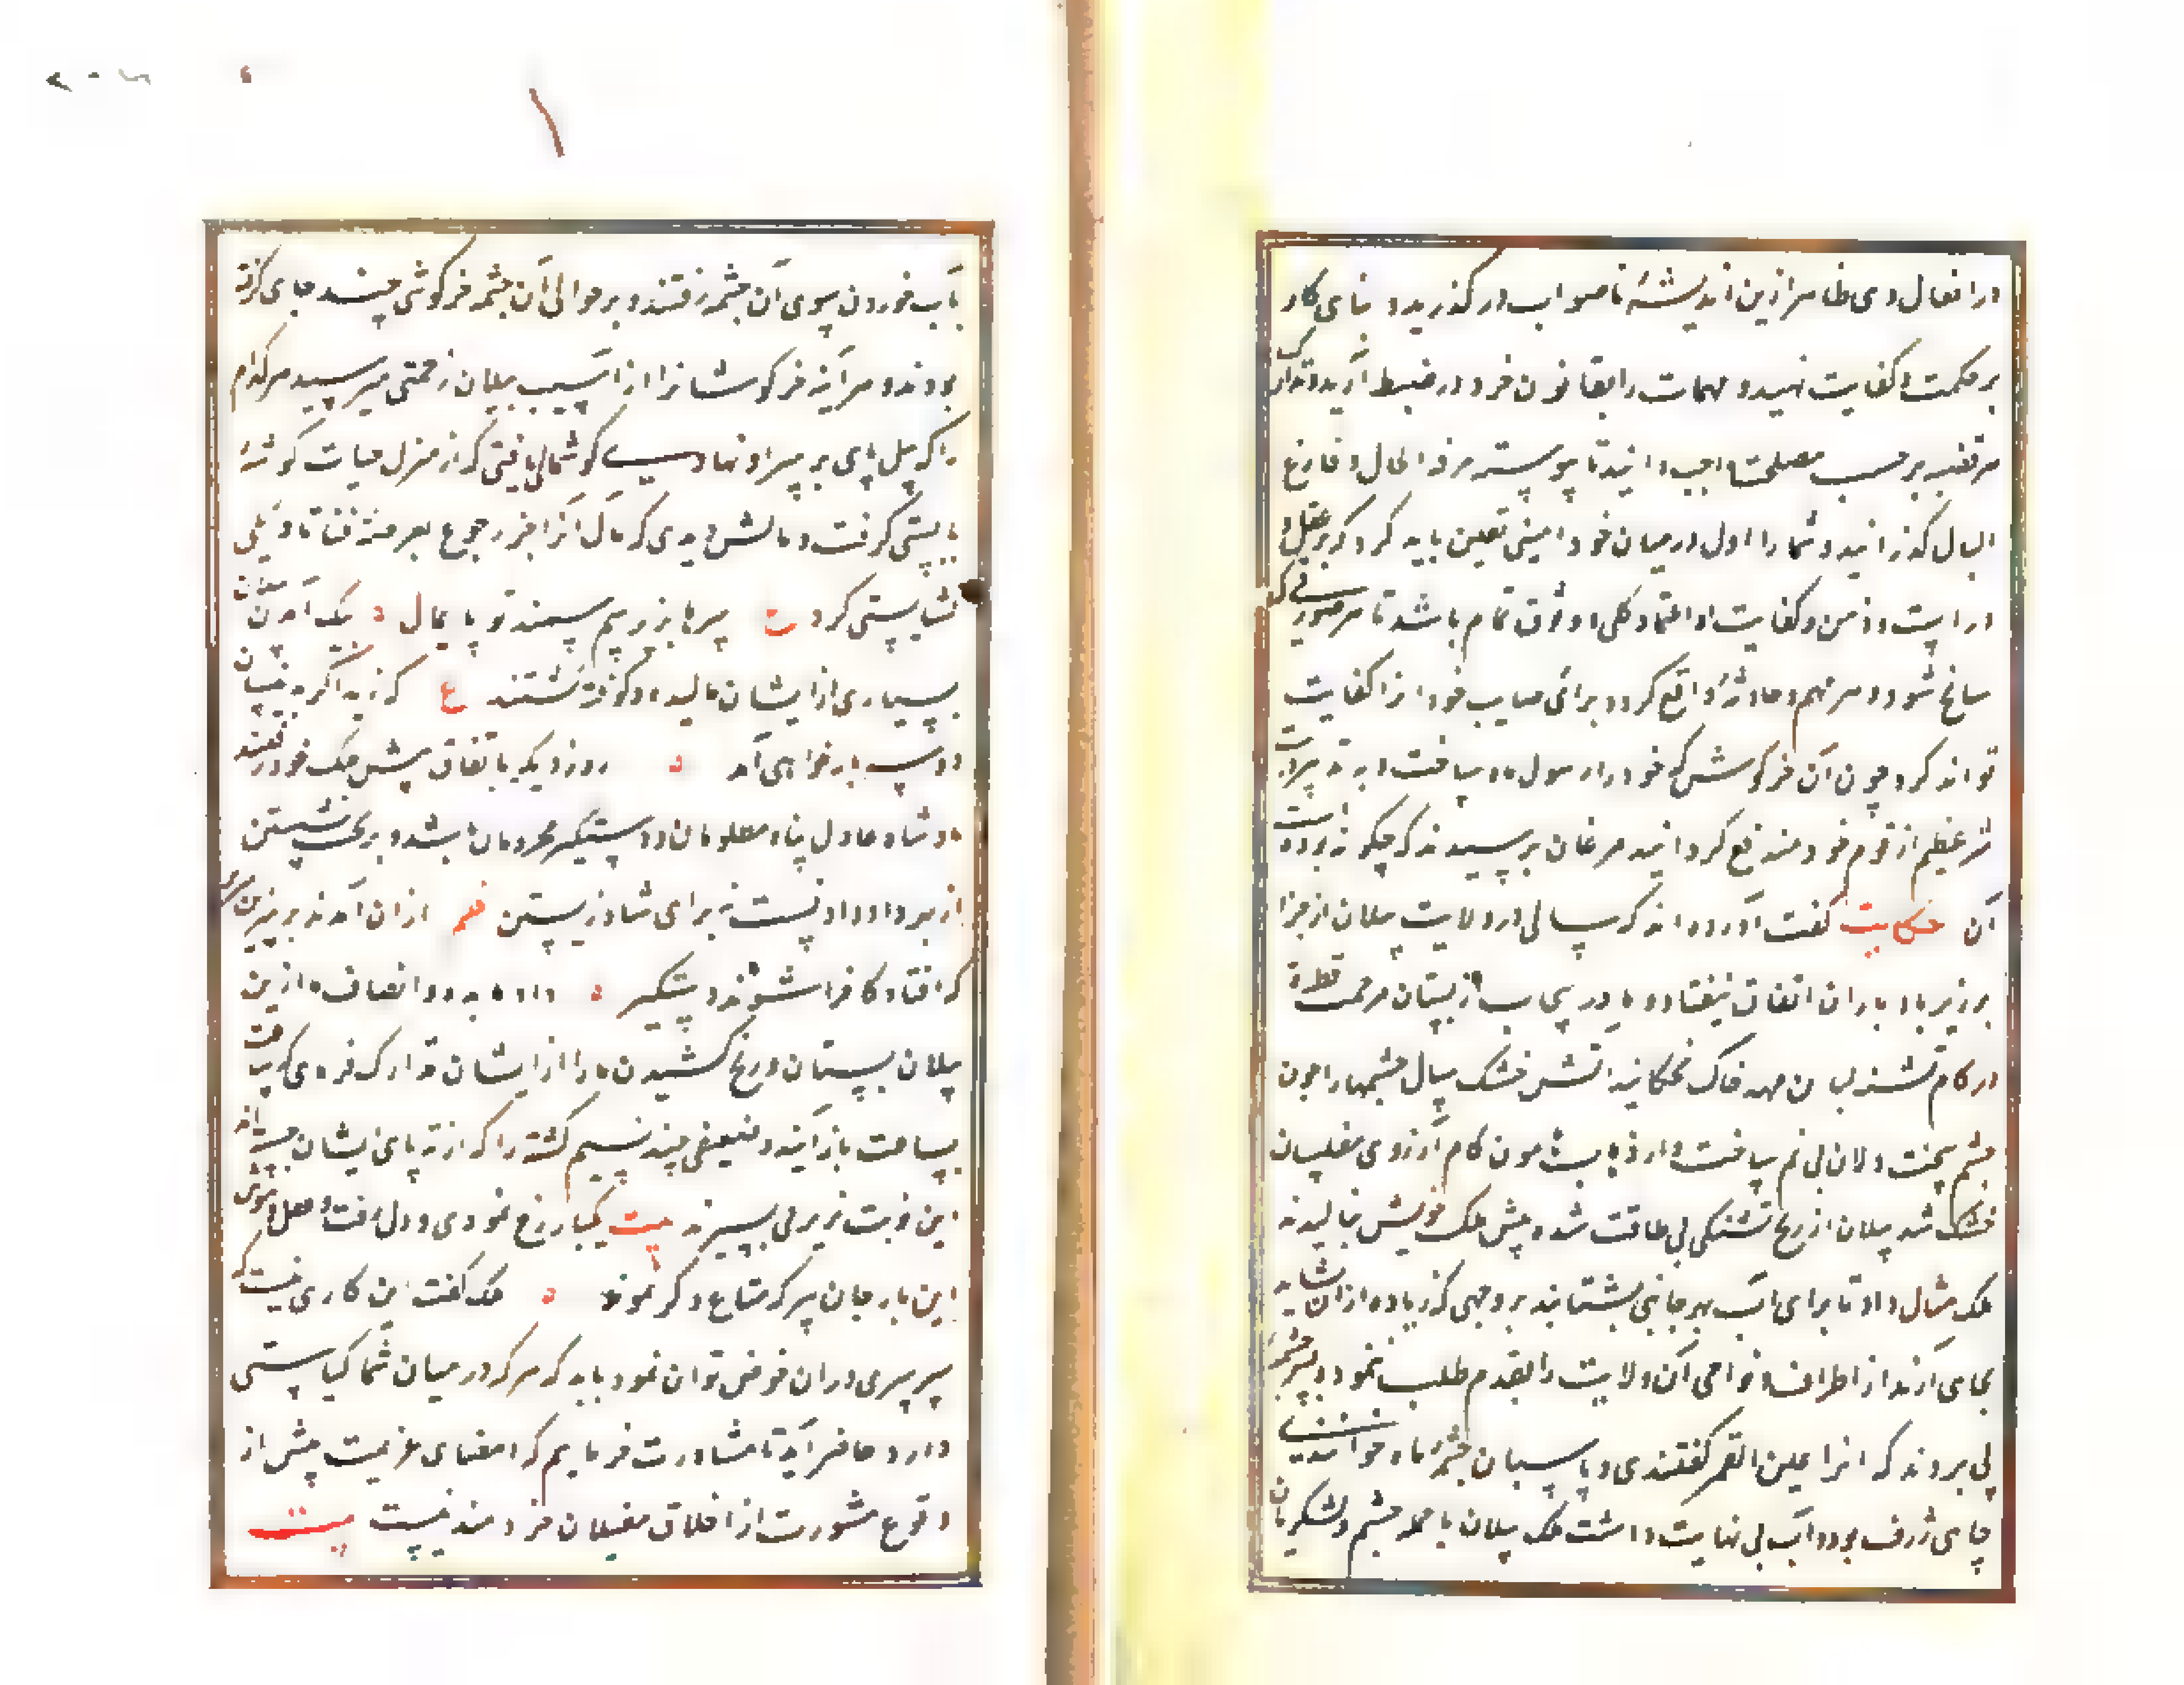 در افعال وی ظاهر ازین اندیشهٔ ناصواب درگذرید و بنای کار
بر حکمت و کفایت نهید و مهمات را بقانون خرد در ضبط آرید و تدارک
هر قضیه بر حسب مصلحت واجب دانید تا پیوسته مرفه الحال و فارغ
البال گذرانید و شما را اول در میان خود امینی تعیین باید کرد که بر عقل و
درایت و ذهن و کفایت او اعتماد کلی و وثوق تمام باشد تا هر صورتی که
سانح شود و هر مهم و حادثهٔ واقع گردد برای صایب خود از آن کفایت
تواند کرد چون آن خرگوش که خود را رسول ماه ساخت و به تدبیر درست
شر عظیم از قوم خود مندفع گردانید مرغان پرسیدند که چگونه بوده است
آن حکایت گفت آورده‌اند که سالی در ولایت پیلان از جزایر
زیرباد باران اتفاق نیفتاد و مادر سحاب از پستان مرحمت قطره
در کام تشنه لبان مهد خاک نچکانید آتش خشک سال چشمها را چون
چشم سخت دلان بی نم ساخت و
خشک شد پیلان از رنج تشنگی بی طاقت شده پیش ملک خویش بنالیدند
ملک مثال داد تا برای آب بهر جانبی بشتابند بر وجهی که زیاده از آن نشاید
بجای آرند از اطراف و نواحی آن ولایت را بقدم طلب بپیمودند و بسر چشمهٔ
پی بردند که آنرا عین القمر گفتندی و پارسیان چشمهٔ ماه خواندندی
چاهی ژرف بود و آب بی نهایت داشت ملک پیلان با جمله حشم و لشکریان
بآب خوردن سوی آن چشمه رفتند و بر حوالی آن چشمه خرگوشی چند جای گرفته
بودند و هر آینه خرگوشانرا از آسیب پیلان زحمتی میرسید هر کدام
را که پیل پای بر سر او نهادی گوشمالی یافتی که از منزل حیات گوشهٔ
بایستی گرفت و مالش دیدی که مآل آنرا جز رجوع بعرصهٔ فنا تاویلی
نشایستی کرد بیت سرها زیر سم سمند تو پایمال بیک آمدن
بسیاری از ایشان مالیده و کوفته گشتند ع که زید اگر بدینسان
دو سه بار خواهی آمد روز دیگر باتفاق پیش ملک خود رفتند
پادشاه عادل پناه مظلومان و دستگیر محرومان باشد و بر تخت نشستن
از بهر داد دادنست نه برای شاد زیستن شعر از آن آمدند برین سریر
که افتادگانرا شوند دستگیر داد ما بده و انصاف ما ازین
پیلان بستان و رنج کشیدن ما را از ایشان تدارک فرمای که ساعت
بساعت باز آیند و ضعیفی چند نیم کشته را که از ته پای ایشان جسته‌اند
این نوبت زیر پی بسپرند بیت یکبار رخ نمودی و دل رفت و عقل و هوش
این بار جان ببر که متاع دگر نماند ملک گفت این کاری نیست که
سرسری در آن خوضی توان نمود باید که هر که در میان شما کیاستی
دارد حاضر آید تا مشاورت فرمایم که امضای عزیمت پیش از
وقوع مشورت از اخلاق مقبلان خردمند نیست بیت